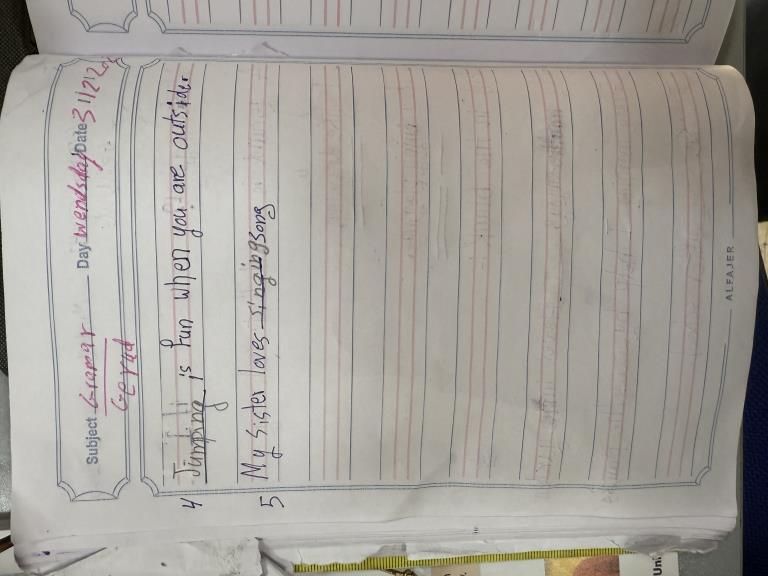 Subject Gramar Day wendsday Date 31/2/20
Gerud
4 Jumping is fun when you are outsider
5 My Sister loves singing song
ALFAJER